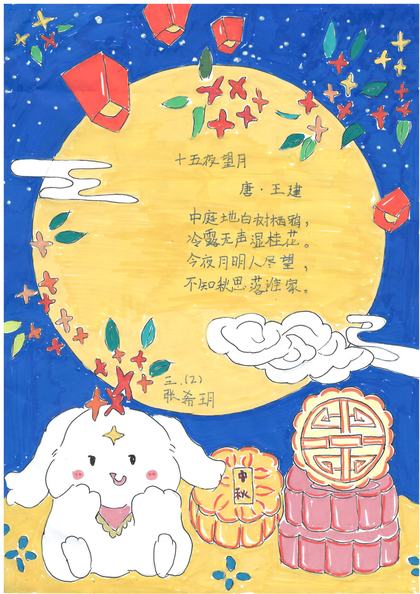 十五夜望月
唐·王建
中庭地白树栖鸦，
冷露无声湿桂花。
今夜月明人尽望，
不知秋思落谁家。
三.(2)
张希玥
中秋